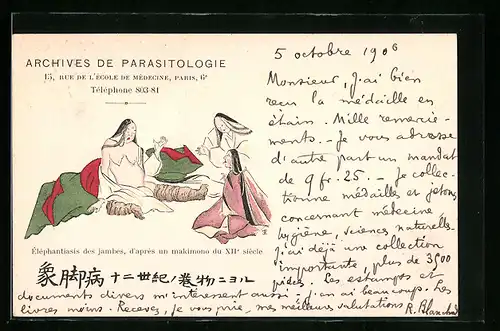 ARCHIVES DE PARASITOLOGIE
15, RUE DE L'ÉCOLE DE MÉDECINE, PARIS, 6e
Téléphone 803-81
5 octobre 1906
Monsieur, J'ai bien
reçu la médaille en
étain. Mille remercie-
ments. - Je vous adresse
d'autre part un mandat
de 9 fr. 25. - Je collec-
tionne médailles et jetons
concernant médecine
hygiène, sciences naturelles.
J'ai déjà une collection
importante, plus de 3500
pièces. Les estampes et
documents divers m'intéressent aussi: j'en ai beaucoup. Les
livres moins. Recevez, je vous prie, mes meilleures salutations
R. Blanchard
Éléphantiasis des jambes, d'après un makimono du XIIe siècle
象脚病 十二世紀ノ巻物ニヨル